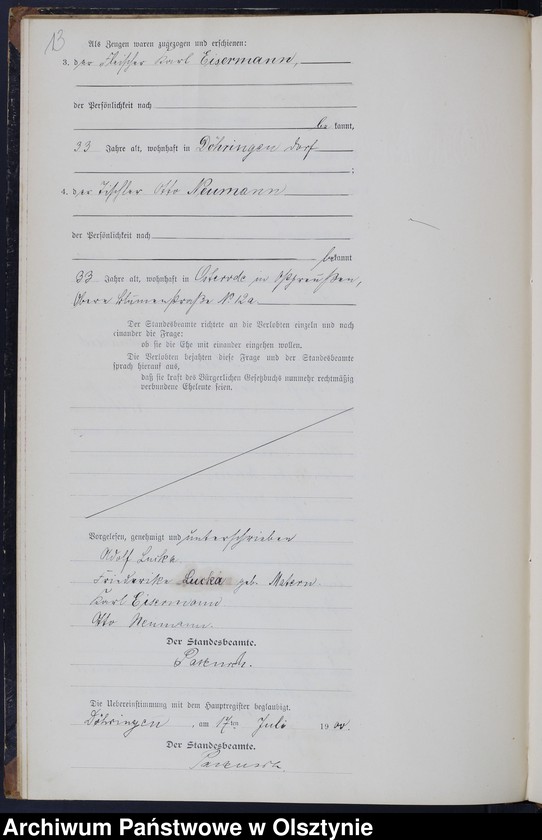 13
Als Zeugen waren zugezogen und erschienen:
3. der Fleischer Karl Eisermann,
der Persönlichkeit nach
be kannt,
33 Jahre alt, wohnhaft in Döhringen Dorf
;
4. der Tischler Otto Neumann
der Persönlichkeit nach
bekannt
33 Jahre alt, wohnhaft in Osterode in Ostpreußen,
Obere Blumenstraße No 12a
Der Standesbeamte richtete an die Verlobten einzeln und nach
einander die Frage:
ob sie die Ehe mit einander eingehen wollen.
Die Verlobten bejahten diese Frage und der Standesbeamte
sprach hierauf aus,
daß sie kraft des Bürgerlichen Gesetzbuchs nunmehr rechtmäßig
verbundene Eheleute seien.
Vorgelesen, genehmigt und unterschrieben
Adolf Lucka
Friederike Lucka geb. Matern.
Karl Eisermann
Otto Neumann.
Der Standesbeamte.
Die Uebereinstimmung mit dem Hauptregister beglaubigt.
Döhringen, am 17ten Juli 1900.
Der Standesbeamte.
Archiwum Państwowe w Olsztynie